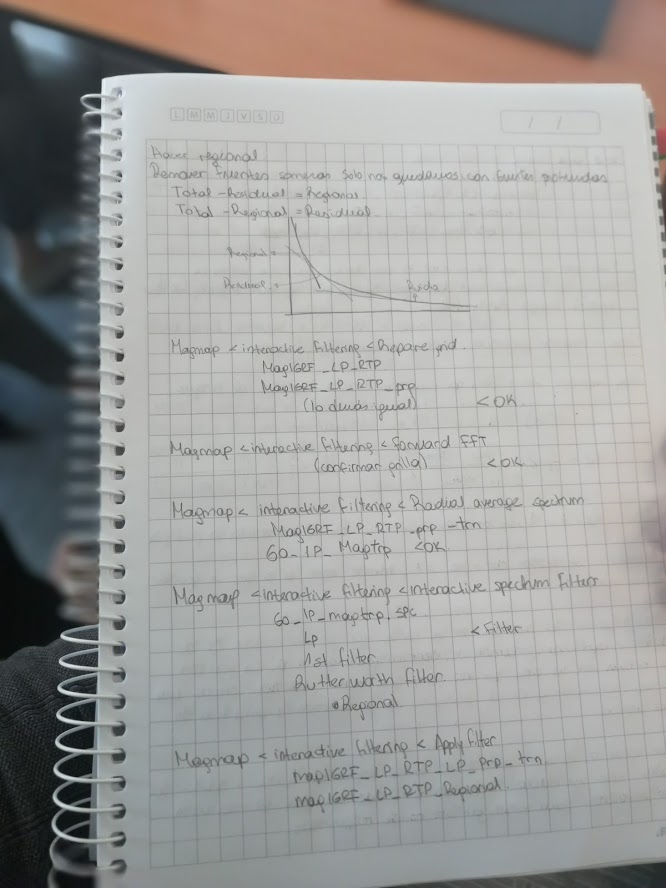 L M M J V S D
/ /
Hacer regional
Remover fuentes someras solo nos quedamos con fuentes profundas
Total - Residual = Regional
Total - Regional = Residual
Regional
Residual
Ruido
Magmap < interactive filtering < Prepare grid
MagIGRF_LP_RTP
MagIGRF_LP_RTP_prp
(lo demás igual) < OK
Magmap < interactive filtering < Forward FFT
(confirmar grilla) < OK
Magmap < interactive filtering < Radial average spectrum
MagIGRF_LP_RTP_prp-trn
60_LP_Magtrp < OK
Magmap < interactive filtering < interactive spectrum filters
60_LP_magtrp.spc
LP < Filter
1st filter
Butterworth filter
• Regional
Magmap < interactive filtering < Apply filter
magIGRF_LP_RTP_LP_prp-trn
magIGRF_LP_RTP_Regional